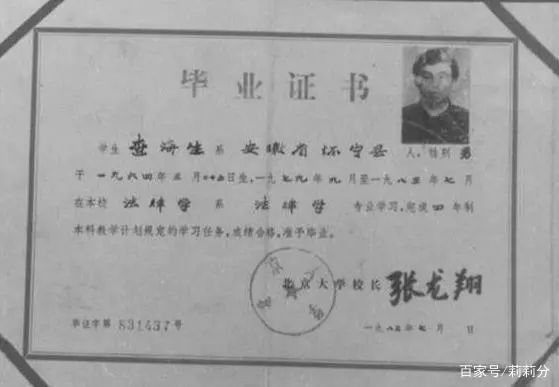 毕业证书
学生 查海生 系 安徽省怀宁县 人，性别 男
于一九六四年三月日生，一九七九年九月至一九八三年七月
在本校 法律学 系 法律学 专业学习，完成四年制
本科教学计划规定的学习任务，成绩合格，准予毕业。
北京大学校长 张龙翔
毕证字第 831437号
一九八三年七月 日
百家号/莉莉分